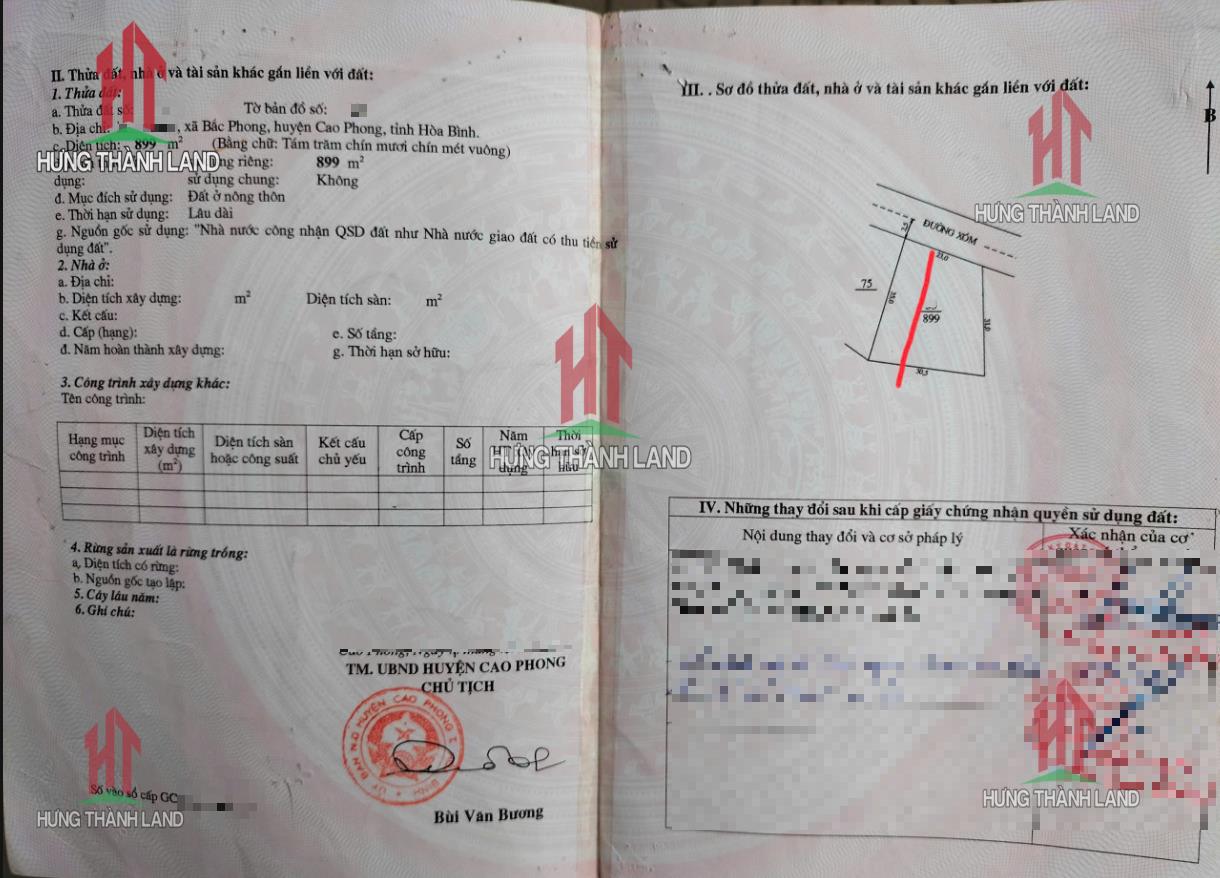 II. Thửa đất, nhà ở và tài sản khác gắn liền với đất:
1. Thửa đất:
a. Thửa đất số: Tờ bản đồ số:
b. Địa chỉ: , xã Bắc Phong, huyện Cao Phong, tỉnh Hòa Bình.
c. Diện tích: 899 m² (Bằng chữ: Tám trăm chín mươi chín mét vuông)
riêng: 899 m²
dụng: sử dụng chung: Không
đ. Mục đích sử dụng: Đất ở nông thôn
e. Thời hạn sử dụng: Lâu dài
g. Nguồn gốc sử dụng: "Nhà nước công nhận QSD đất như Nhà nước giao đất có thu tiền sử
dụng đất".
2. Nhà ở:
a. Địa chỉ:
b. Diện tích xây dựng: m² Diện tích sàn: m²
c. Kết cấu:
d. Cấp (hạng): e. Số tầng:
đ. Năm hoàn thành xây dựng: g. Thời hạn sở hữu:
3. Công trình xây dựng khác:
Tên công trình:
Hạng mục công trình
Diện tích xây dựng (m²)
Diện tích sàn hoặc công suất
Kết cấu chủ yếu
Cấp công trình
Số tầng
Năm HT dựng
Thời hạn sở hữu
4. Rừng sản xuất là rừng trồng:
a, Diện tích có rừng:
b. Nguồn gốc tạo lập:
5. Cây lâu năm:
6. Ghi chú:
TM. UBND HUYỆN CAO PHONG
CHỦ TỊCH
HUYỆN CAO PHONG
Bùi Văn Bương
Số vào sổ cấp GC
III. . Sơ đồ thửa đất, nhà ở và tài sản khác gắn liền với đất:
B
ĐƯỜNG XÓM
23,0
75
35,0
899
31,0
30,5
IV. Những thay đổi sau khi cấp giấy chứng nhận quyền sử dụng đất:
Nội dung thay đổi và cơ sở pháp lý
Xác nhận của cơ
HƯNG THÀNH LAND
HƯNG THÀNH LAND
HƯNG THÀNH LAND
HƯNG THÀNH LAND
HƯNG THÀNH LAND